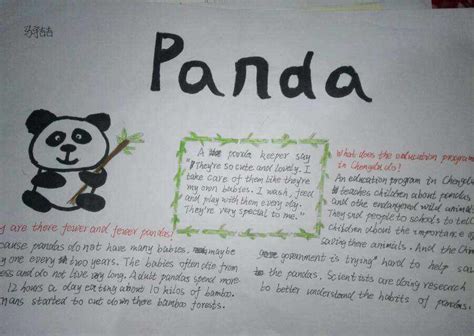 Panda
A the panda keeper say
"They're so cute and lovely. I
take care of them like they're
my own babies. I wash, feed
and play with them every day.
They're very special to me."
What does the education programe
in Chengdu do!
An education program in Chengdu
teaches children about pandas
and othe endangered wild animals
They snd people to schools to tell
children about the importance of
saving there animals. And the Chin
government is trying" hard to help sav
the pandas. Scientists are doing research
to better understand the habits of pandas.
y are there fewer and fewer pandas!
cause pandas do not have many babies, maybe
ly one every two years. The babies often die from
ess and do not live very long. Adult pandas spend more
12 hours a day eating about 10 kilos of bamboo.
mans started to cut down there bamboo forests.